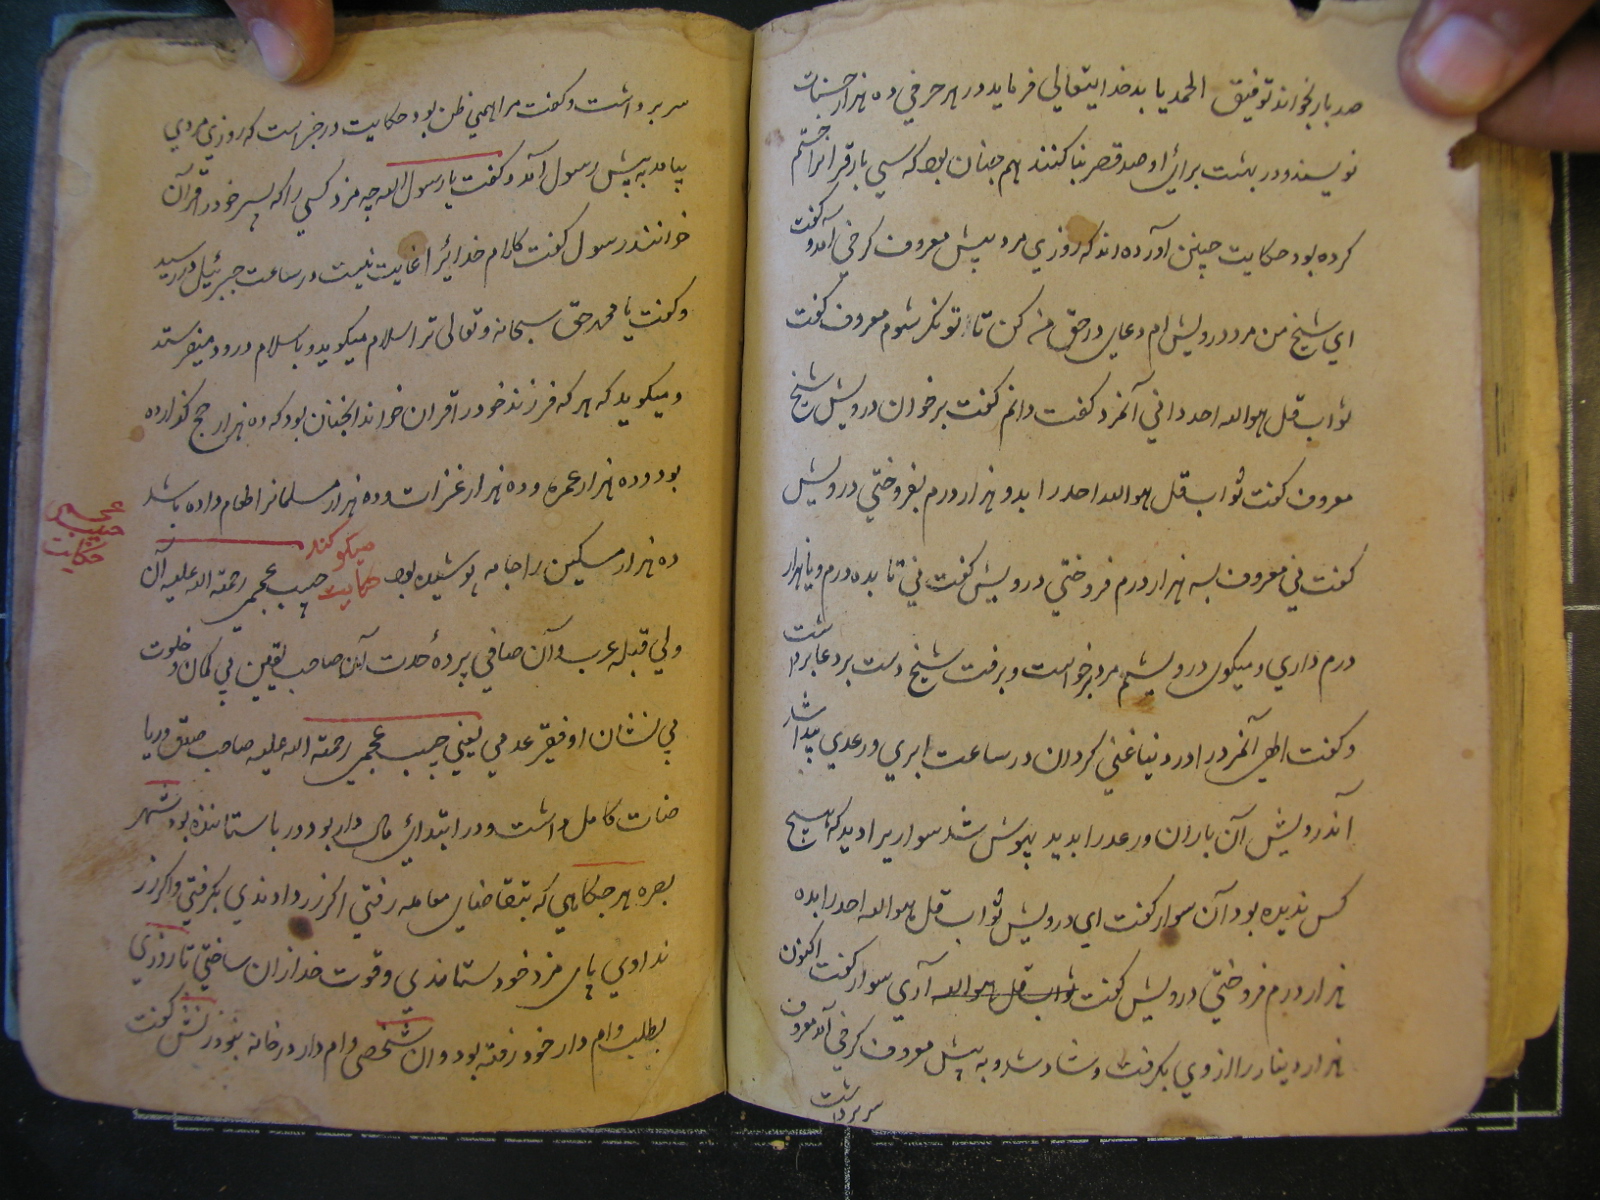 صد بار بخواند توفیق الحمد یابد خدایتعالی فرماید در هر حرفی ده هزار حسنات
نویسند و در بهشت برای او صد قصر بنا کنند هم چنان بود که سی بار قرانرا ختم
کرده بود حکایت چنین آورده اند که روزی مرد پیش معروف کرخی آمد و گفت
ای شیخ من مرد درویش ام دعای در حق من کن تا تونگر شوم معروف گفت
ثواب قل هو الله احد دانی آنمرد گفت دانم گفت برخوان درویش شیخ
معروف گفت ثواب قل هو الله احد را بدو هزار درم بفروختی درویش
گفت نی معروف بسه هزار درم فروختی درویش گفت نی تا بده درم و یا هزار
درم داری و میگوی درویشم مرد برخواست و برفت شیخ دست بر دعا برداشت
و گفت الهی آنمرد را در دنیا غنی گردان در ساعت ابری و رعدی پیدا شد
آندرویش آن باران و رعد را بدید بیهوش شد سواریرا دید که هیچ
کس ندیده بود آن سوار گفت ای درویش ثواب قل هو الله احد را بده
هزار درم فروختی درویش گفت ثواب قل هو الله آری سوار گفت اکنون
هزار دینار را از وی بگرفت و شاد شد و به پیش معروف کرخی آمد معروف
سر برداشت
سر برداشت و گفت مرا همین ظن بود حکایت در خبر است که روزی مردی
بیامد به پیش رسول آمد و گفت یا رسول الله چه مزد کسی را که پسر خود را قرآن
خوانند رسول گفت کلام خدایرا غایت نیست در ساعت جبرئیل در رسید
و گفت یا محمد حق سبحانه و تعالی ترا سلام میگوید و با سلام درود میفرستد
و میگوید که هر که فرزند خود را قران خواند انچنان بود که ده هزار حج گذارده
بود و ده هزار عمره و ده هزار غزات و ده هزار مسلمانرا طعام داده باشد
ده هزار مسکین را جامه پوشیده بود حکایت میکو کند حبیب عجمی رحمة الله علیه آن
حکایت حبیب عجمی
ولی قبله عرب و آن صافی پرده حدت آن صاحب یقین بی گمان و خلوت
بی نشان او فقیر عدمی یعنی حبیب عجمی رحمة الله علیه صاحب صدق و ریا
ضات کامل داشت و در ابتدای مال دار بود و ربا ستاننده بود شهر
بصره هر جکاهی که بتقاضای معامله رفتی اگر زر دادندی بگرفتی و اگر زر
ندادی پای مزد خود ستاندی و قوت خد ازان ساختی تا روزی
بطلب وام دار خود رفته بود و ان شخصی وام دار در خانه نبود زنش گفت